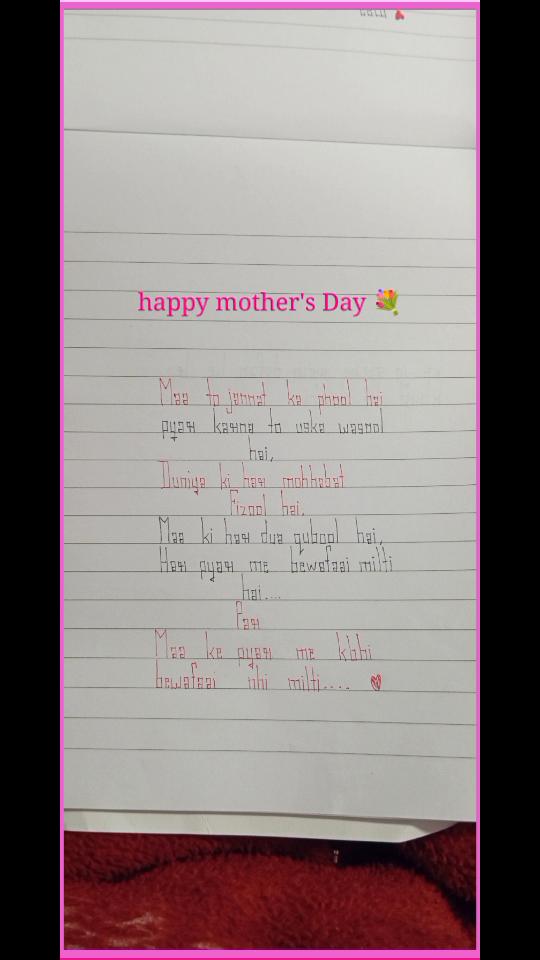 happy mother's Day 💐
Maa to jannat ka phool hai
pyar karna to uska wasool
hai,
Duniya ki har mohhabat
Fizool hai.
Maa ki har dua qubool hai,
Har pyar me bewafaai milti
hai....
Par
Maa ke pyar me kbhi
bewafaai nhi milti....